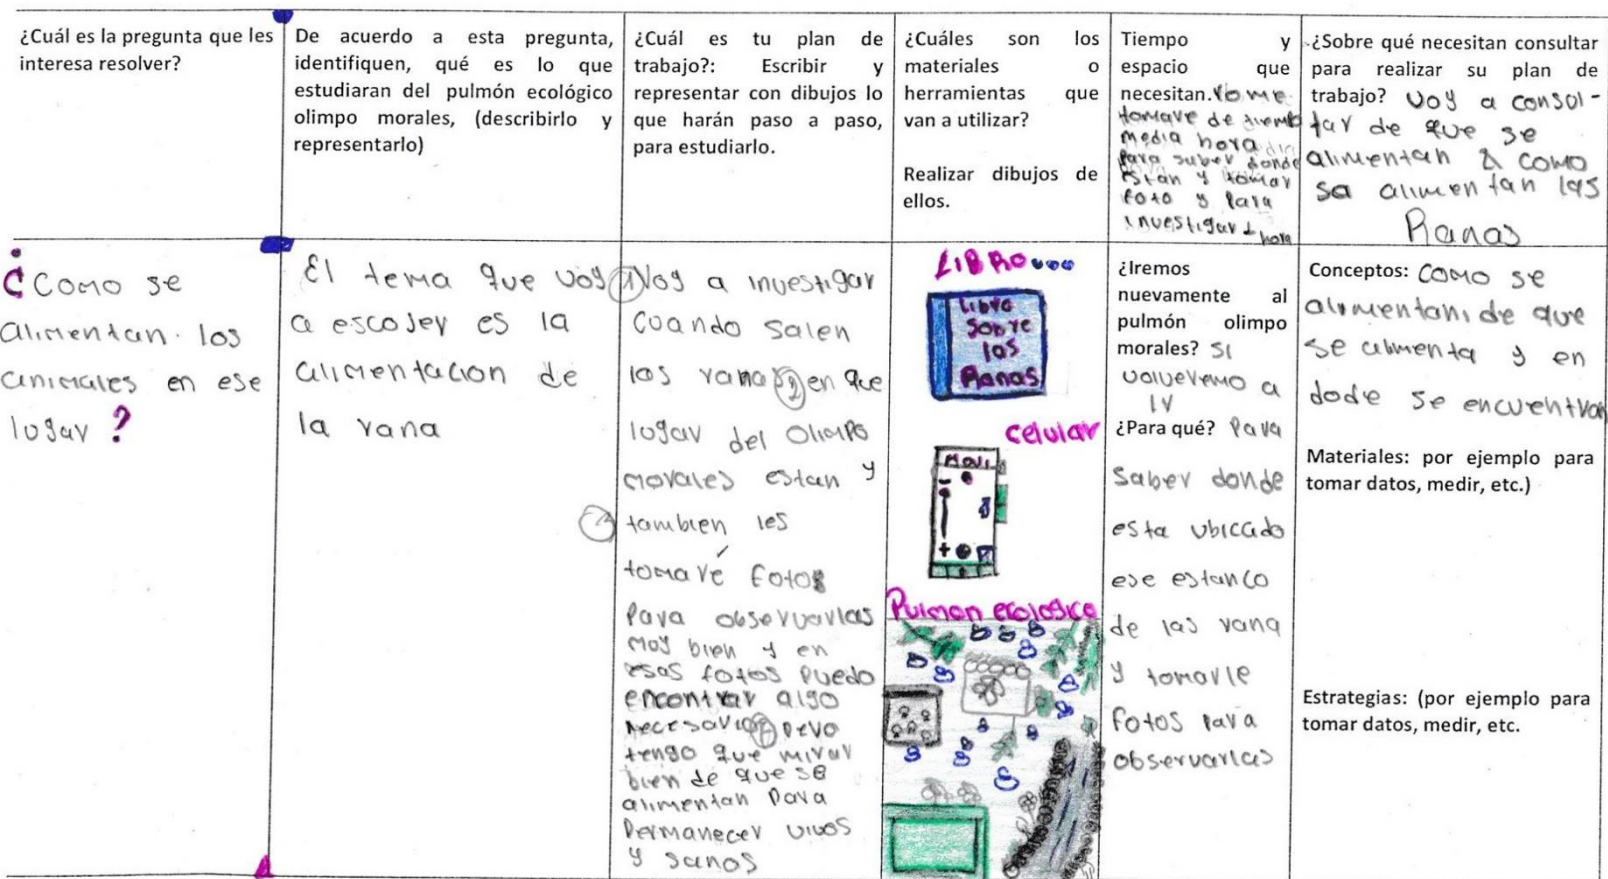 ¿Cuál es la pregunta que les
interesa resolver?
De acuerdo a esta pregunta,
identifiquen, qué es lo que
estudiaran del pulmón ecológico
olimpo morales, (describirlo y
representarlo)
¿Cuál es tu plan de
trabajo?: Escribir y
representar con dibujos lo
que harán paso a paso,
para estudiarlo.
¿Cuáles son los
materiales o
herramientas que
van a utilizar?
Realizar dibujos de
ellos.
Tiempo y
espacio que
necesitan. Yo me
tomare de tiempo
media hora
para saber donde
estan y tomar
foto y para
investigar 1 hora
¿Sobre qué necesitan consultar
para realizar su plan de
trabajo? Voy a consol-
tar de que se
alimentan & como
sa alimentan las
Ranas
¿Como se
alimentan los
animales en ese
lugar?
El tema que voy
a escojer es la
alimentacion de
la rana
1 Voy a investigar
cuando salen
las ranas 2 en que
lugar del Olimpo
morales estan y
3 tambien les
tomaré fotos
para observarlas
moy bien y en
esas fotos puedo
encontrar algo
necesario 4 pero
tengo que mirar
bien de que se
alimentan para
permanecer vivos
y sanos
LIBRO...
Libro
sobre
las
Ranas
celular
Movi
Pulmon ecologico
¿Iremos
nuevamente al
pulmón olimpo
morales? Si
volveremo a
ir
¿Para qué? Para
saber donde
esta ubicado
ese estanco
de las rana
y tomarle
fotos para
observarlas
Conceptos: como se
alimentan, de que
se alimenta y en
dode se encuentran
Materiales: por ejemplo para
tomar datos, medir, etc.)
Estrategias: (por ejemplo para
tomar datos, medir, etc.